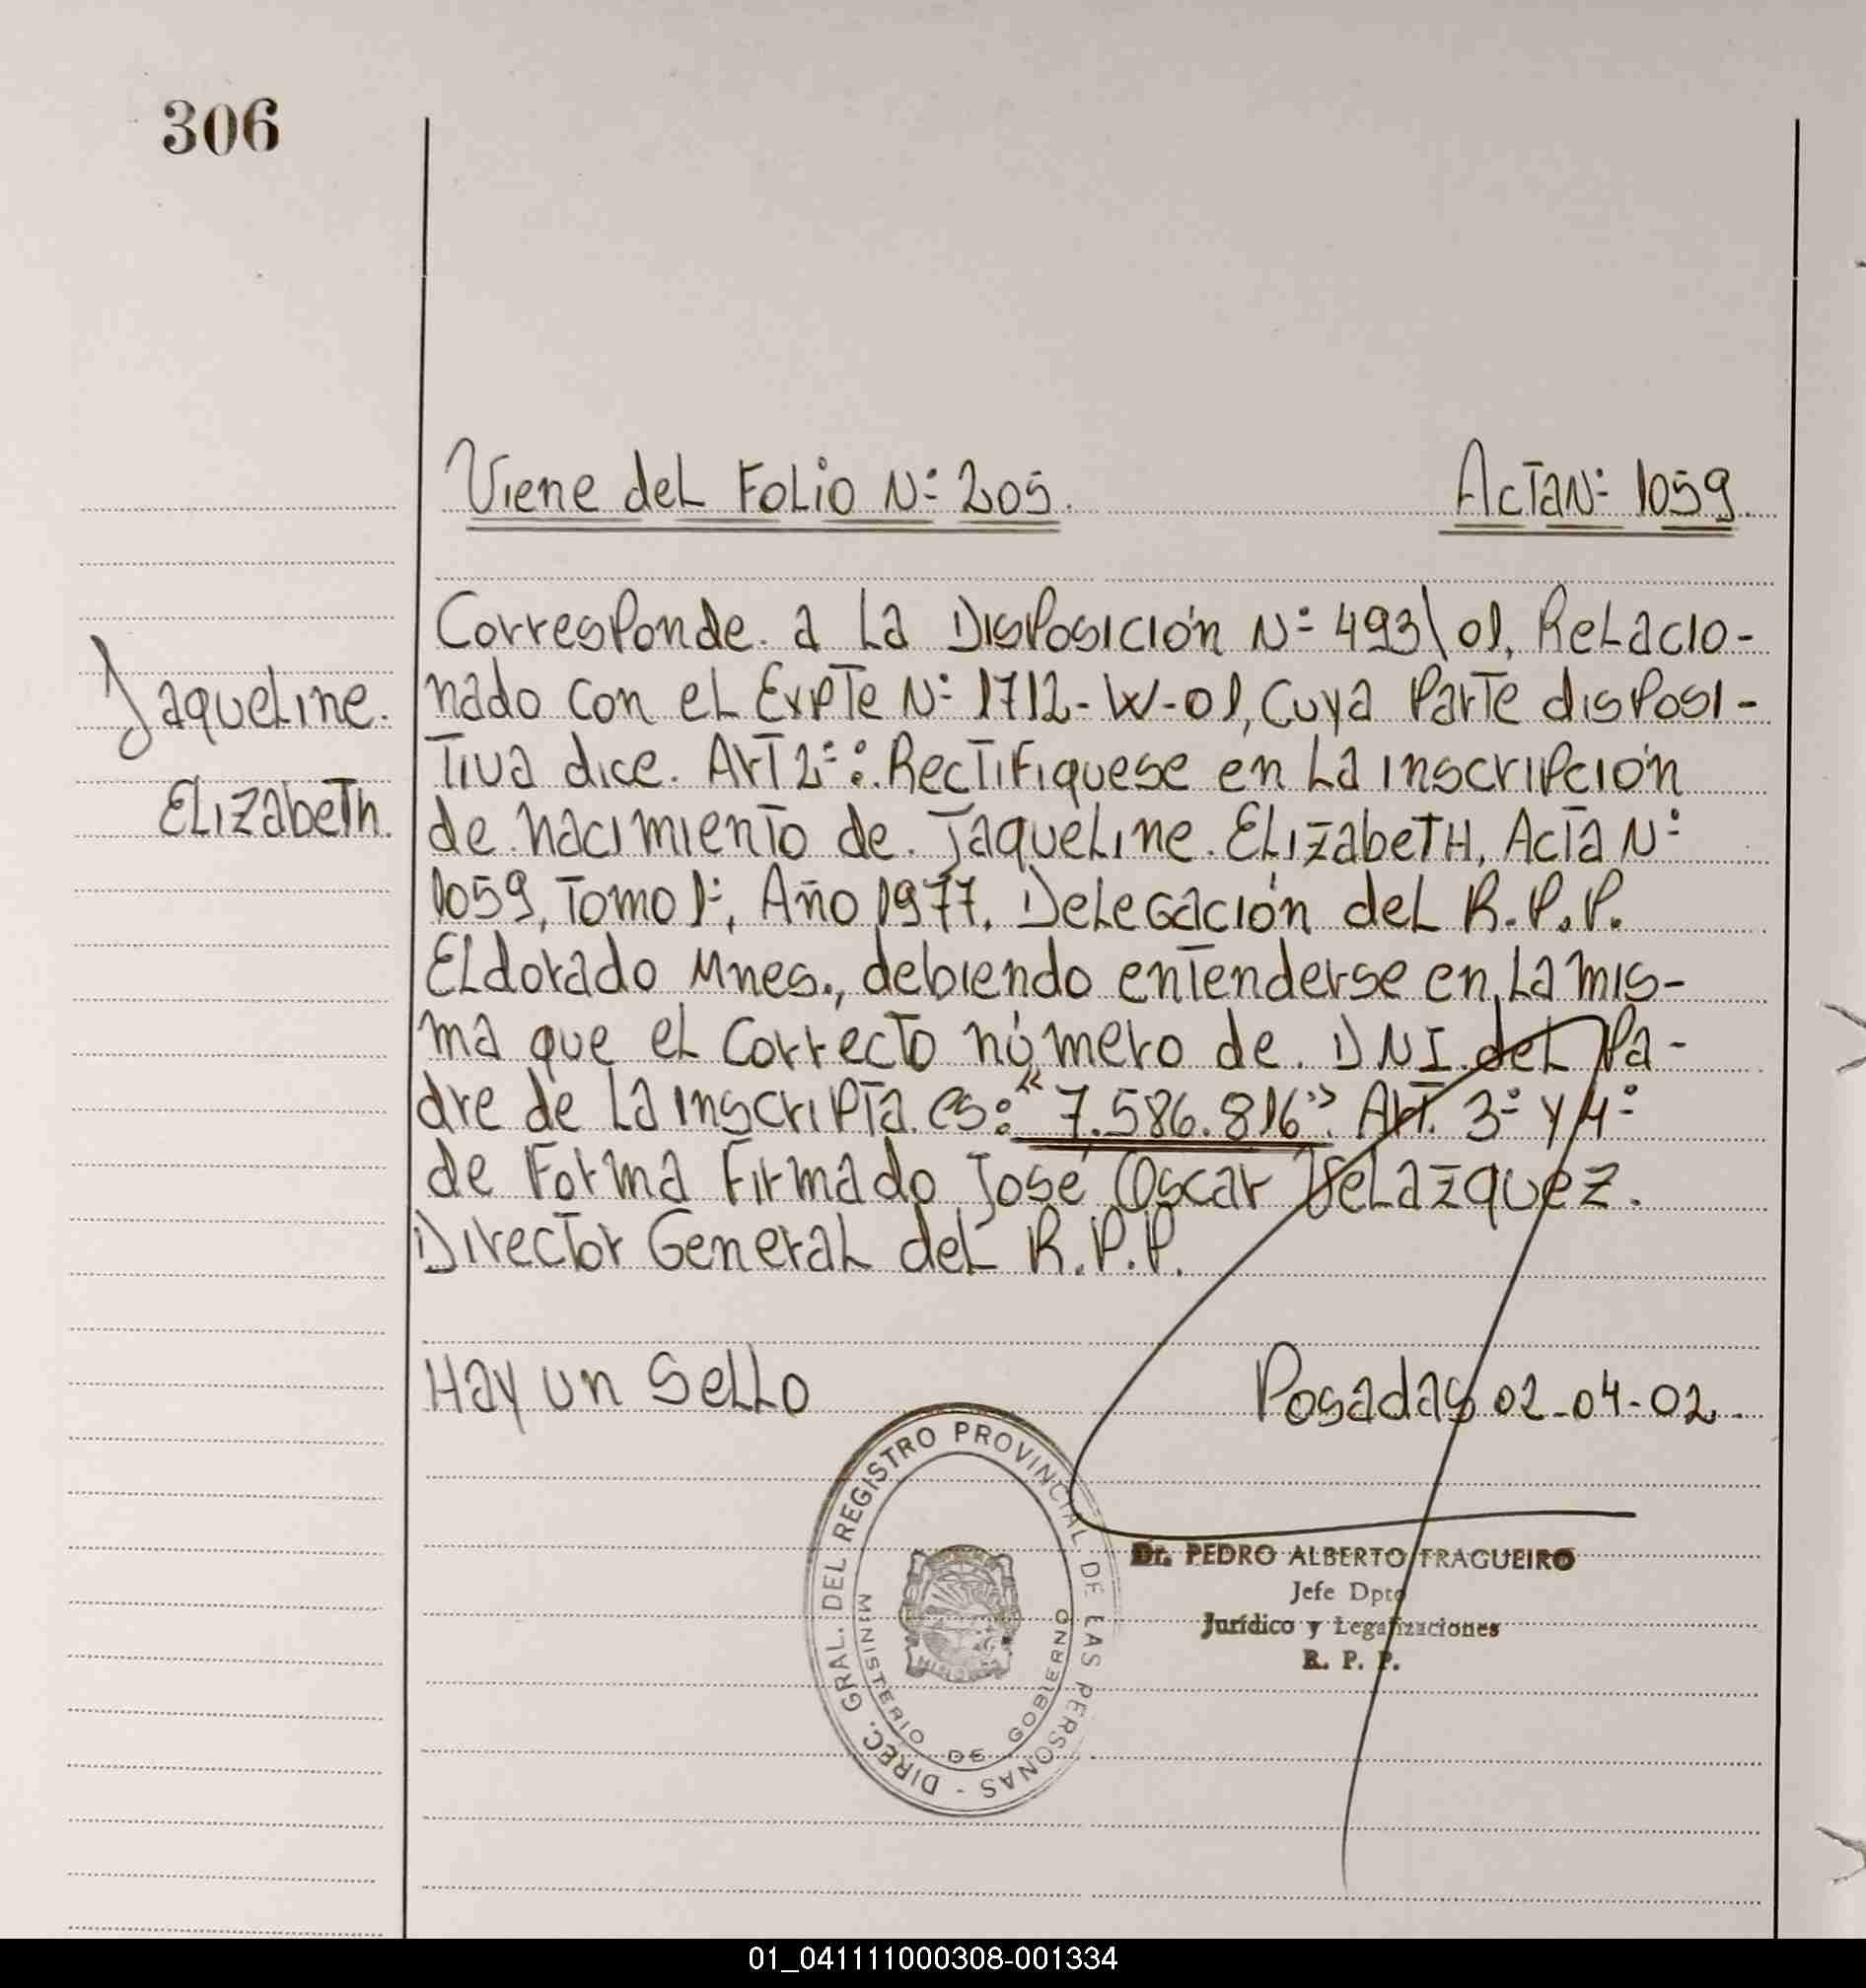 306
Viene del Folio N: 205. Acta N: 1059.
Corresponde a la Disposición N: 493\01, Relacio-
Jaqueline. nado con el Expte N: 1712-W-01, Cuya Parte disposi-
tiva dice. Art 2:: Rectifiquese en la inscripción
Elizabeth. de nacimiento de Jaqueline Elizabeth, Acta N:
1059, Tomo 1:, Año 1977. Delegación del R.P.P.
Eldorado Mnes., debiendo entenderse en la mis-
ma que el correcto número de DNI del Pa-
dre de la inscripta es: "7.586.816". Art. 3: y 4:
de Forma Firmado José Oscar Velazquez.
Director General del R.P.P.
Hay un Sello Posadas 02-04-02.
DIREC. GRAL. DEL REGISTRO PROVINCIAL DE LAS PERSONAS -
MINISTERIO DE GOBIERNO
MISIONES
Dr. PEDRO ALBERTO TRAGUEIRO
Jefe Dpto
Jurídico y Legalizaciones
R. P. P.
01_041111000308-001334